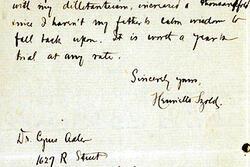 with my dilettanteism, increased a thousandfold
since I haven't my father's calm wisdom to
fall back upon. It is worth a year's
trial at any rate.
Sincerely yours,
Henrietta Szold.
Dr. Cyrus Adler
1627 R Street